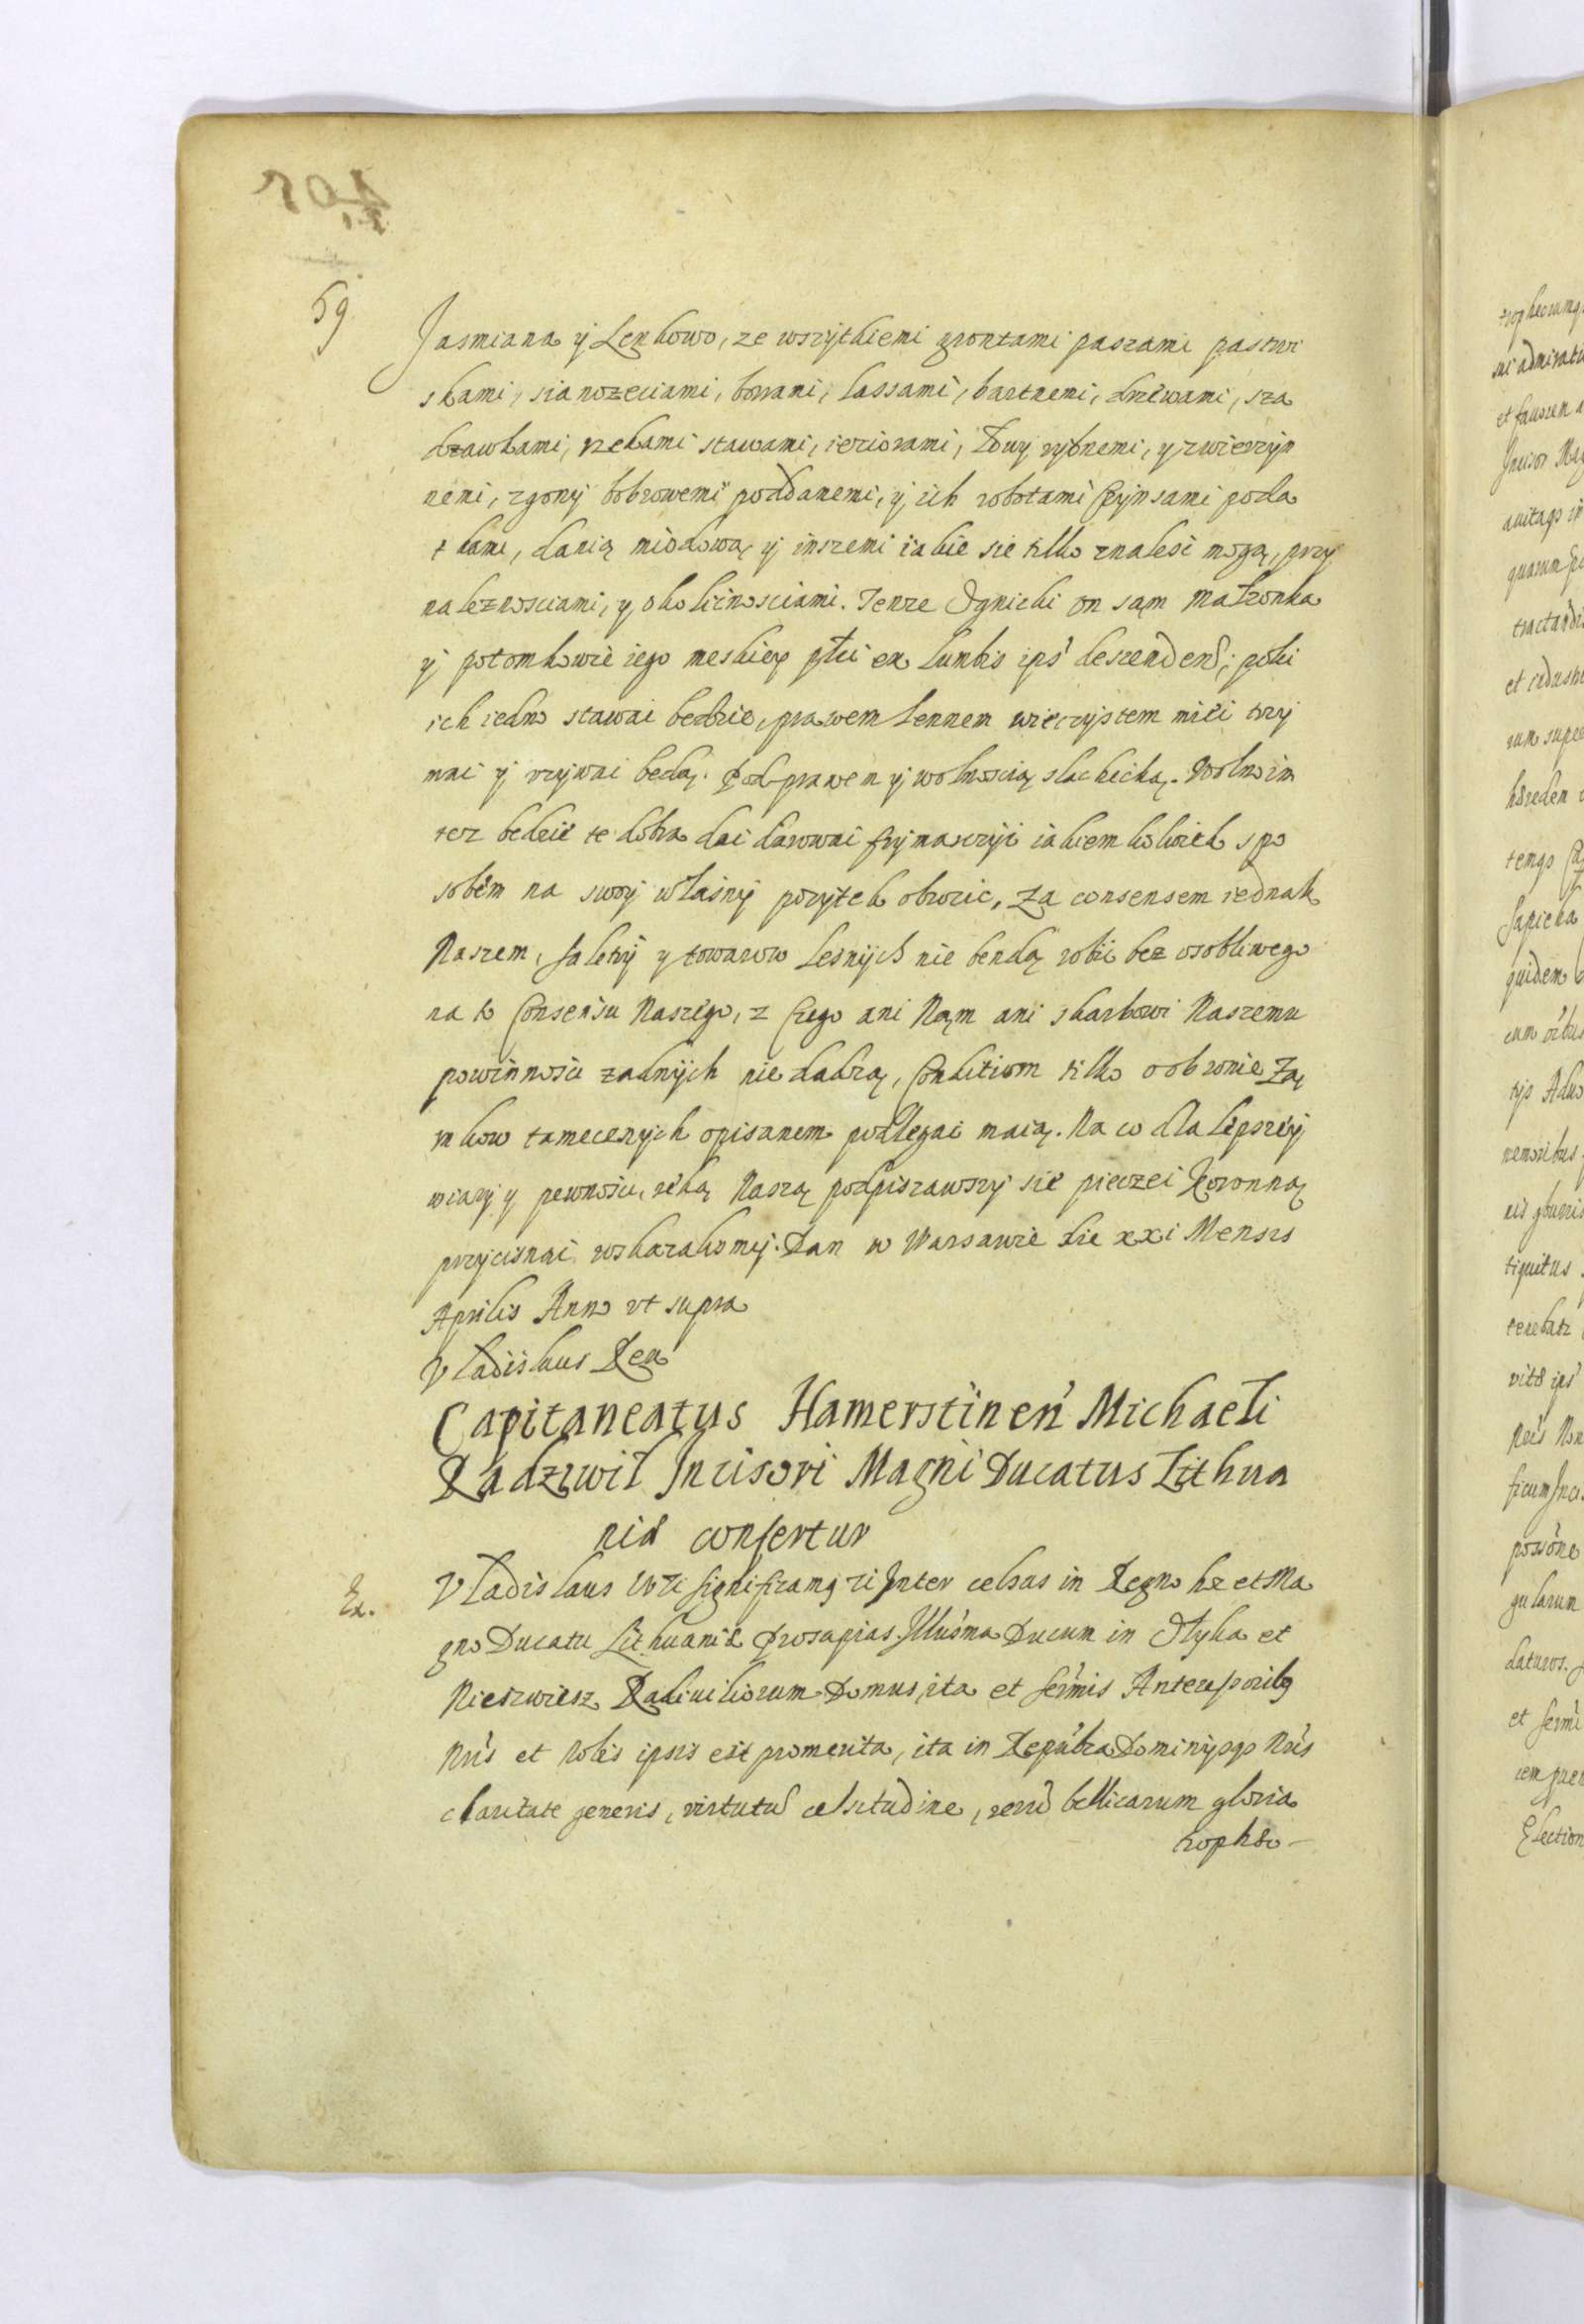 59
Jasmiana y Lenkowo, ze wszytkiemi grontami paszami pastwi
skami, sianozeciami, borami, lassami, bartnemi, drzewami, sza
dzawkami, rzekami stawami, ieziorami, Łowy rybnemi, y zwierzyn
nemi, zgony bobrowemi poddanemi, y ich robotami Czynsami poda
tkami, danią miodową y inszemi iakie sie tilko znalesc mogą, przy
naleznosciami, y okolicznosciami. Tenze Ognicki on sąm Małzonka
y potomkowie iego meskiey płci ex Lumbis ips' descendend; poki
ich iedno stawai bedzie, prawem Lennem wieczystem miec trzy
mac y uzywac bedą. Pod prawem y wolnoscią slachecką. Wolno im
tez bedzie te dobra dac darowac frymarczyc iakiem kolwiek spo
sobem na swoy własny pozytek obrocic, Za consensem iednak
Naszem, Saletry y towarow Lesnych nie bendą robic bez osobliwego
na to Consensu Naszego, z Czego ani Nąm ani skarbowi Naszemu
powinnosci zadnych nie dadzą, Conditiom tilko o obronie Zą
mkow tamecznych opisanem podlegac maią. Na co dla lepszey
wiary y pewnosci, reką Naszą podpisawszy sie pieczec Koronną
przycisnac roskazalismy. Dan w Warsawie die xxi Mensis
Aprilis Anno vt supra
Vladislaus Rex
Capitaneatus Hamerstinen' Michaeli
Radziwił Incisori Magni Ducatus Lithua
niæ confertur
Ex.
Vladislaus IV Significamq Inter celsas in Regno hoc et Ma
gno Ducatu Lithuaniæ Prosapias. Illus'ma Ducum in Olyka et
Nieszwiesz Radiviliorum Domus, ita et Ser'mis Antecessorib9
Nr'is et Nobis ipsis est promerita, ita in Repub'ca Dominysq Nr'is
claritate generis, virtutu' celsitudine, reru' bellicarum gloria
trophæo-